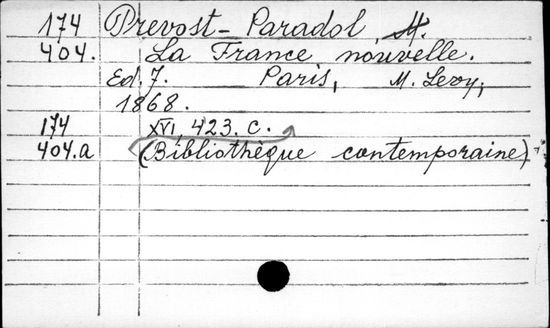 174 Prevost-Paradol, M.
404. La France nouvelle.
Ed. 7. Paris, M. Levy,
1868.
174 XVI, 423. c.
404.a (Bibliothèque contemporaine)